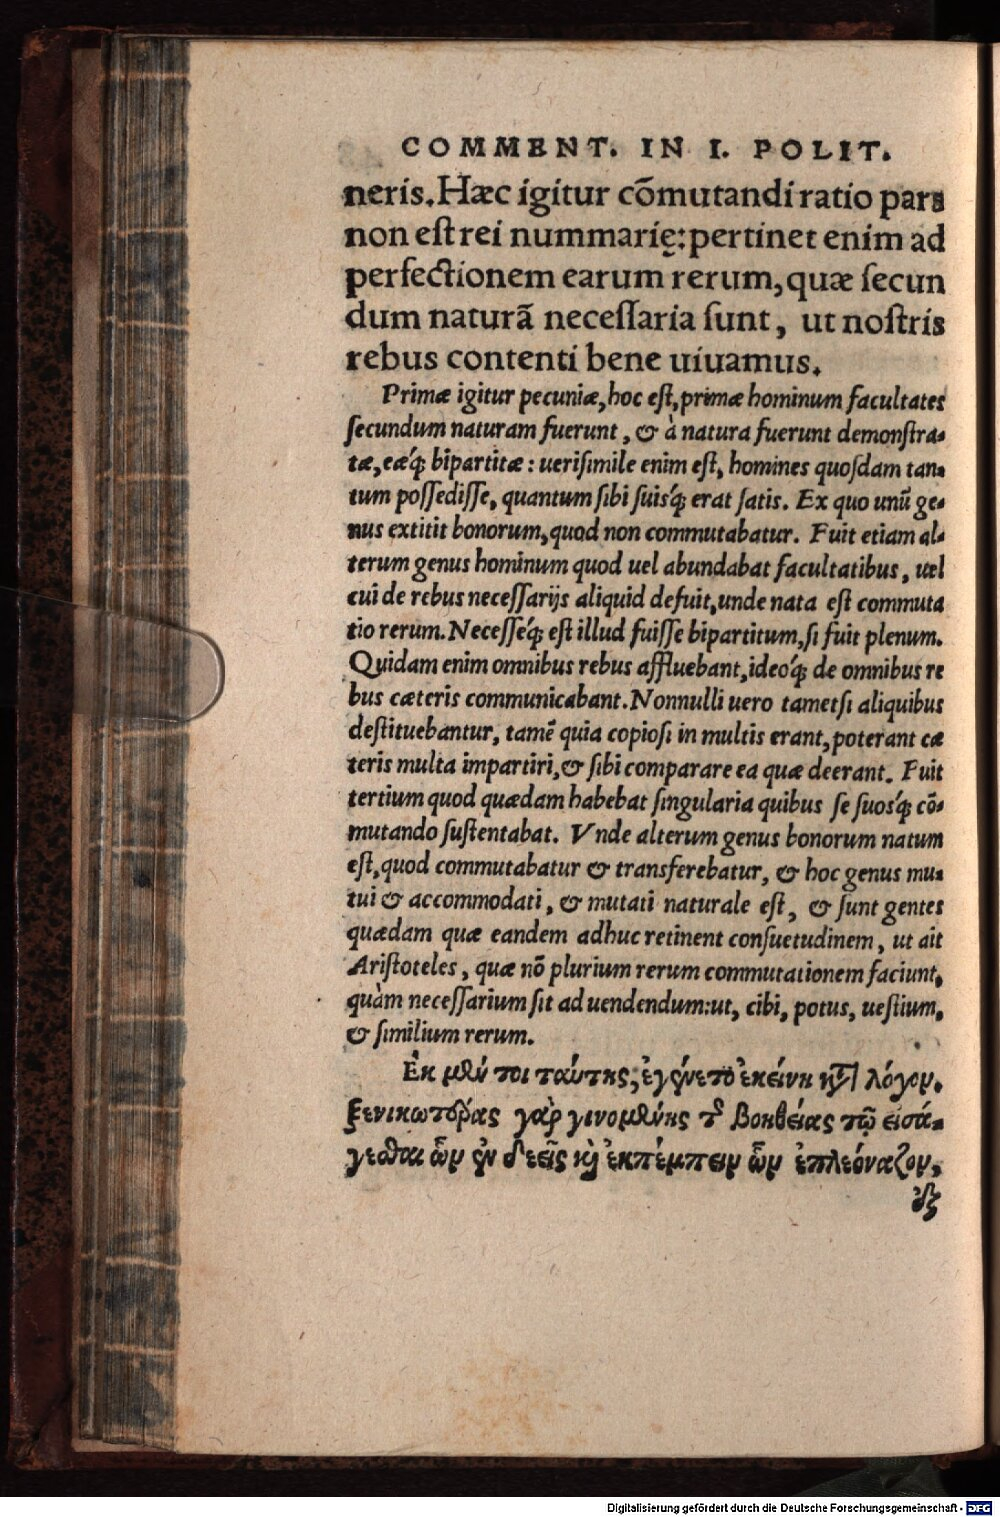 COMMENT. IN I. POLIT.
neris. Hæc igitur cõmutandi ratio pars
non est rei nummarię: pertinet enim ad
perfectionem earum rerum, quæ secun
dum naturã necessaria sunt, ut nostris
rebus contenti bene uiuamus.
Primæ igitur pecuniæ, hoc est, primæ hominum facultates
secundum naturam fuerunt, & à natura fuerunt demonstra-
tæ, eæq́; bipartitæ: uerisimile enim est, homines quosdam tan-
tum possedisse, quantum sibi suisq́; erat satis. Ex quo unũ ge-
nus extitit bonorum, quod non commutabatur. Fuit etiam al-
terum genus hominum quod uel abundabat facultatibus, uel
cui de rebus necessarijs aliquid defuit, unde nata est commuta
tio rerum. Necesseq́; est illud fuisse bipartitum, si fuit plenum.
Quidam enim omnibus rebus affluebant, ideoq́; de omnibus re
bus cæteris communicabant. Nonnulli uero tametsi aliquibus
destituebantur, tamẽ quia copiosi in multis erant, poterant cæ
teris multa impartiri, & sibi comparare ea quæ deerant. Fuit
tertium quod quædam habebat singularia quibus se suosq́; cõ-
mutando sustentabat. Vnde alterum genus bonorum natum
est, quod commutabatur & transferebatur, & hoc genus mu-
tui & accommodati, & mutati naturale est, & sunt gentes
quædam quæ eandem adhuc retinent consuetudinem, ut ait
Aristoteles, quæ nõ plurium rerum commutationem faciunt,
quàm necessarium sit ad uendendum: ut, cibi, potus, uestium,
& similium rerum.
Ἐκ μέν τοι ταύτης, ἐγένετο ἐκείνη κατὰ λόγον.
ξενικωτέρας γὰρ γινομένης τῆς βοηθείας τῷ εἰσά-
γεσθαι ὧν ἐνδεεῖς καὶ ἐκπέμπειν ὧν ἐπλεόναζον,
ἐξ
Digitalisierung gefördert durch die Deutsche Forschungsgemeinschaft - DFG